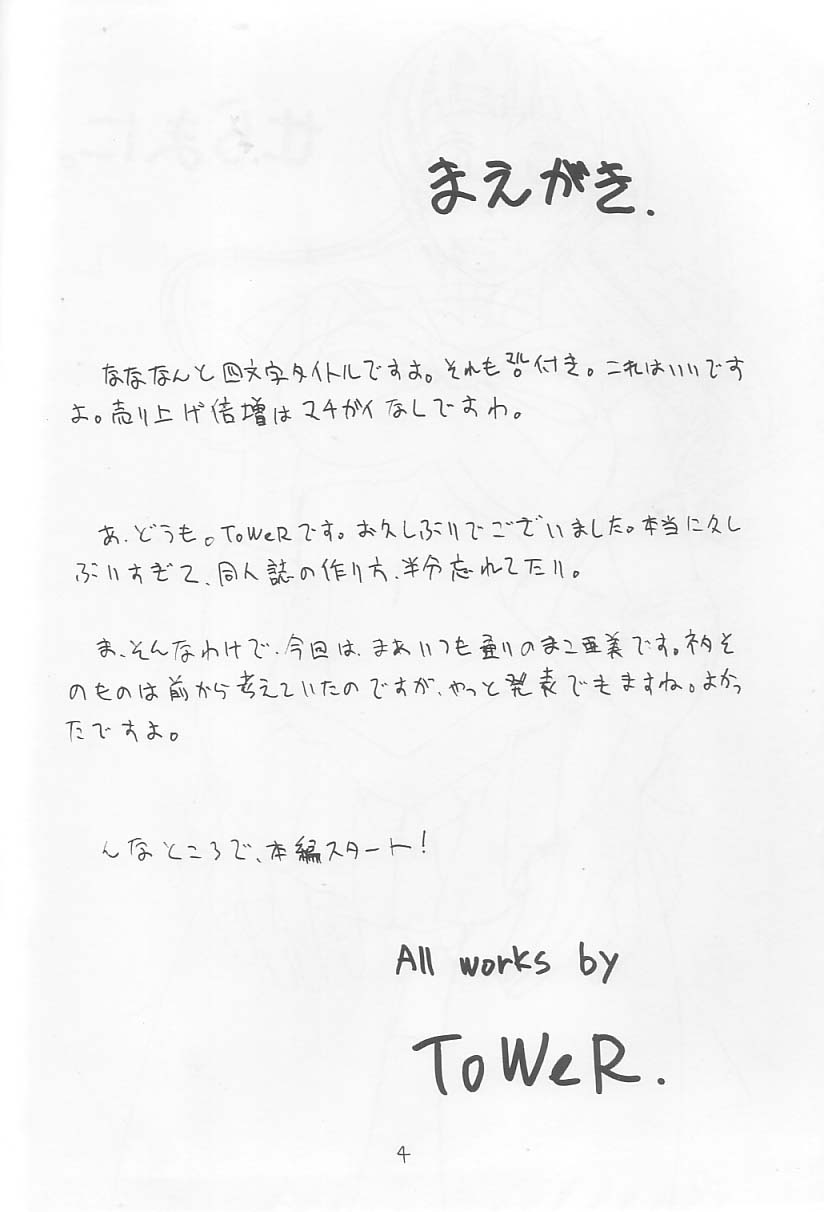 まえがき.
なななんと四文字タイトルですよ。それもマル付き。これはいいです
よ。売り上げ倍増はマチガイなしですわ。
あ、どうも。ToWeRです。お久しぶりでございました。本当に久し
ぶりすぎて、同人誌の作り方、半分忘れてたり。
ま、そんなわけで、今回は、まあいつも通りのまこ亜美です。ネタそ
のものは前から考えていたのですが、やっと発表できますね。よかっ
たですよ。
んなところで、本編スタート!
All works by
ToWeR.
4